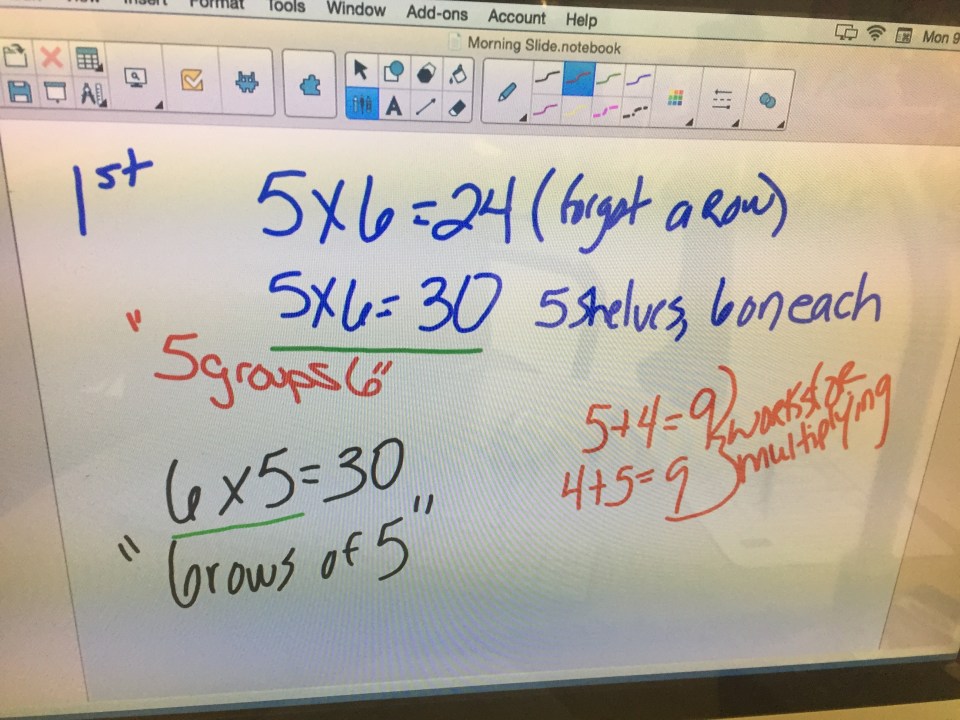 Insert Format Tools Window Add-ons Account Help
Mon 9
Morning Slide.notebook
A
1st
5x6=24 (forgot a Row)
5x6=30 5 shelves, 6 on each
"5groups 6"
5+4=9
4+5=9
works for
multiplying
6x5=30
"6 rows of 5"